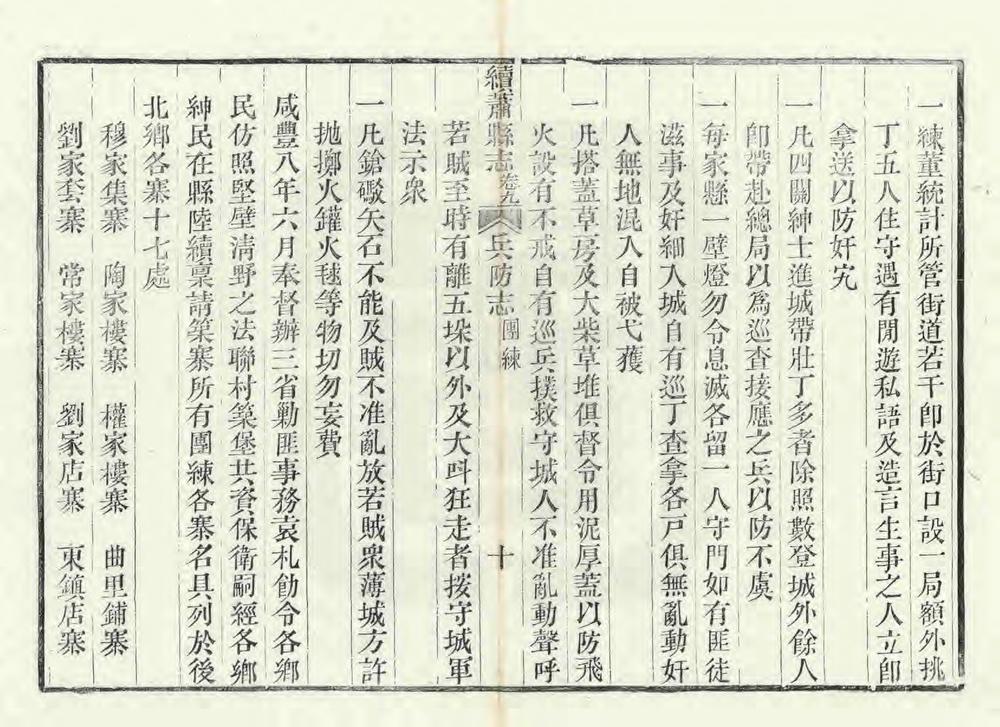 一練董統計所管街道若干卽於街口設一局額外挑
丁五人住守遇有閒遊私語及造言生事之人立卽
拿送以防奸宄
一凡四關紳士進城帶壯丁多者除照數登城外餘人
卽帶赴總局以爲巡查接應之兵以防不虞
一每家懸一壁燈勿令息滅各留一人守門如有匪徒
滋事及奸細入城自有巡丁查拿各戸俱無亂動奸
人無地混入自被弋獲
一凡搭蓋草房及大柴草堆俱督令用泥厚蓋以防飛
火設有不戒自有巡兵撲救守城人不准亂動聲呼
續蕭縣志 卷九 兵防志 團練 十
若賊至時有離五垜以外及大呌狂走者按守城軍
法示衆
一凡鎗礮矢石不能及賊不准亂放若賊衆薄城方許
抛擲火罐火毬等物切勿妄費
咸豐八年六月奉督辦三省勦匪事務袁札飭令各鄉
民仿照堅壁淸野之法聯村築堡共資保衛嗣經各鄉
紳民在縣陸續稟請築寨所有團練各寨名具列於後
北鄉各寨十七處
穆家集寨 陶家樓寨 權家樓寨 曲里鋪寨
劉家套寨 常家樓寨 劉家店寨 東鎮店寨